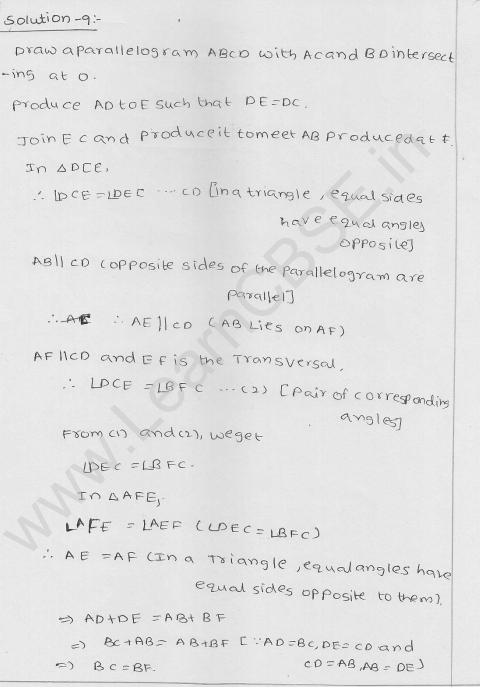 Solution-9:-
Draw a parallelogram ABCD with AC and BD intersect
-ing at O.
Produce AD to E such that DE=DC.
Join EC and produce it to meet AB produced at F.
In △DCE,
∴ ∠DCE=∠DEC ...CD [In a triangle, equal sides
have equal angles
opposite]
AB∥CD (opposite sides of the parallelogram are
parallel]
∴ AE ∴ AE∥CD (AB Lies on AF)
AF∥CD and EF is the Transversal.
∴ ∠DCE =∠BFC ...(2) [Pair of corresponding
angles]
From (1) and (2), we get
∠DEC =∠BFC.
In △AFE,
∠AFE = ∠AEF (∠DEC=∠BFC)
∴ AE =AF (In a Triangle, equal angles have
equal sides opposite to them).
⇒ AD+DE =AB+BF
⇒ BC+AB= AB+BF [∵AD=BC, DE=CD and
⇒ BC=BF. CD=AB, AB=DE]
www.LearnCBSE.in